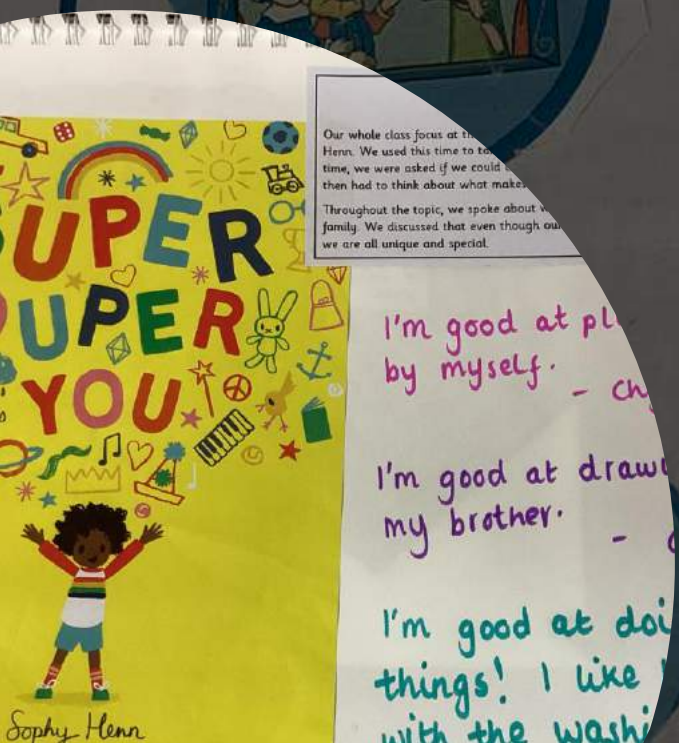 SUPER
UPER
YOU
Sophy Henn
Our whole class focus at
Henn. We used this time to
time, we were asked if we could
then had to think about what makes
Throughout the topic, we spoke about
family. We discussed that even though our
we are all unique and special.
I'm good at
by myself.
-
I'm good at
my brother.
-
I'm good at
things! I like
with the